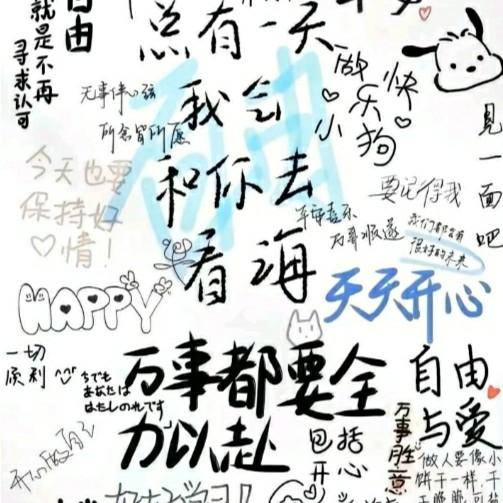 就是不再
寻求认可
自由
总有一天
我会
和你去
看海
做
快
乐
小
狗
见一面吧
无事绊心弦
所念皆所愿
自由
今天也要
保持好
心情！
要记得我
平安喜乐
万事顺遂
我们都会有
很好的未来
天天开心
HAPPY
一切
顺利
今でも
あなたは
わたしの光です
万事都要全
力以赴
包括
开心
自由
与爱
万事胜意
做人要像小
饼干一样，干
开心做自己